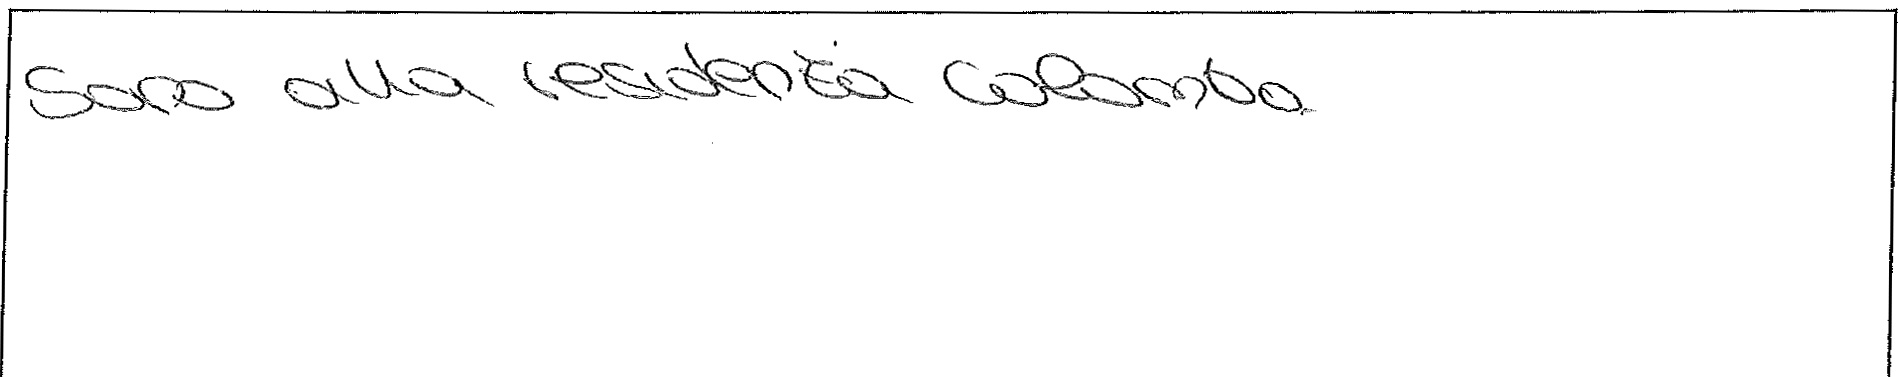 Sono alla residenza Colomba.